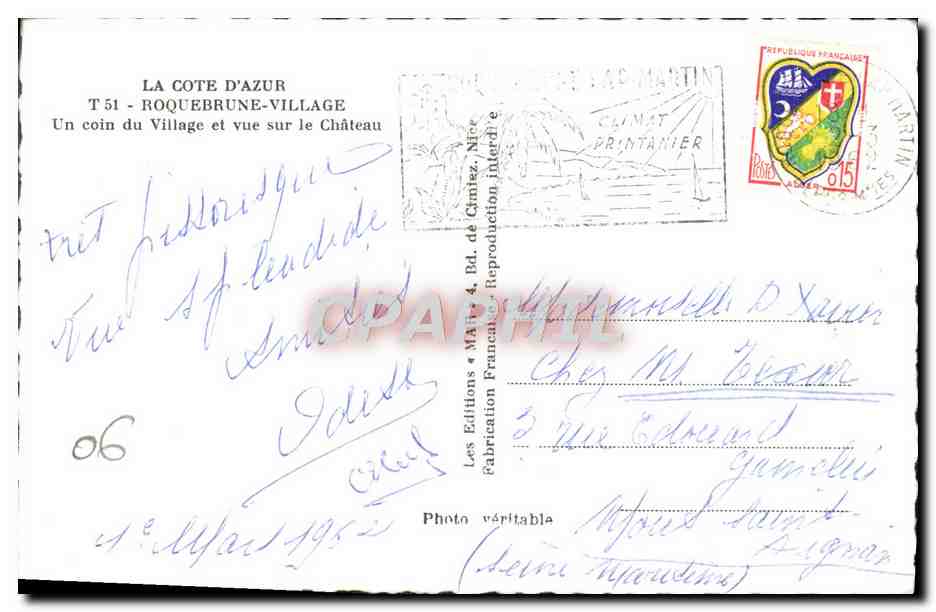 LA COTE D'AZUR
T 51 - ROQUEBRUNE-VILLAGE
Un coin du Village et vue sur le Château
très pittoresque
Vue splendide
Amitiés
06
1er Mars 1962
Les Editions « MAR » 4, Bd. de Cimiez, Nice
Fabrication Française - Reproduction interdite
Photo véritable
CAP-MARTIN
CLIMAT
PRINTANIER
REPUBLIQUE FRANÇAISE
POSTES
ALGER
0,15
MARTIN
CPAPHIL
Mademoiselle D Xavier
Chez M.
3 rue Edouard
Mont Saint
Aignan
(Seine Maritime)